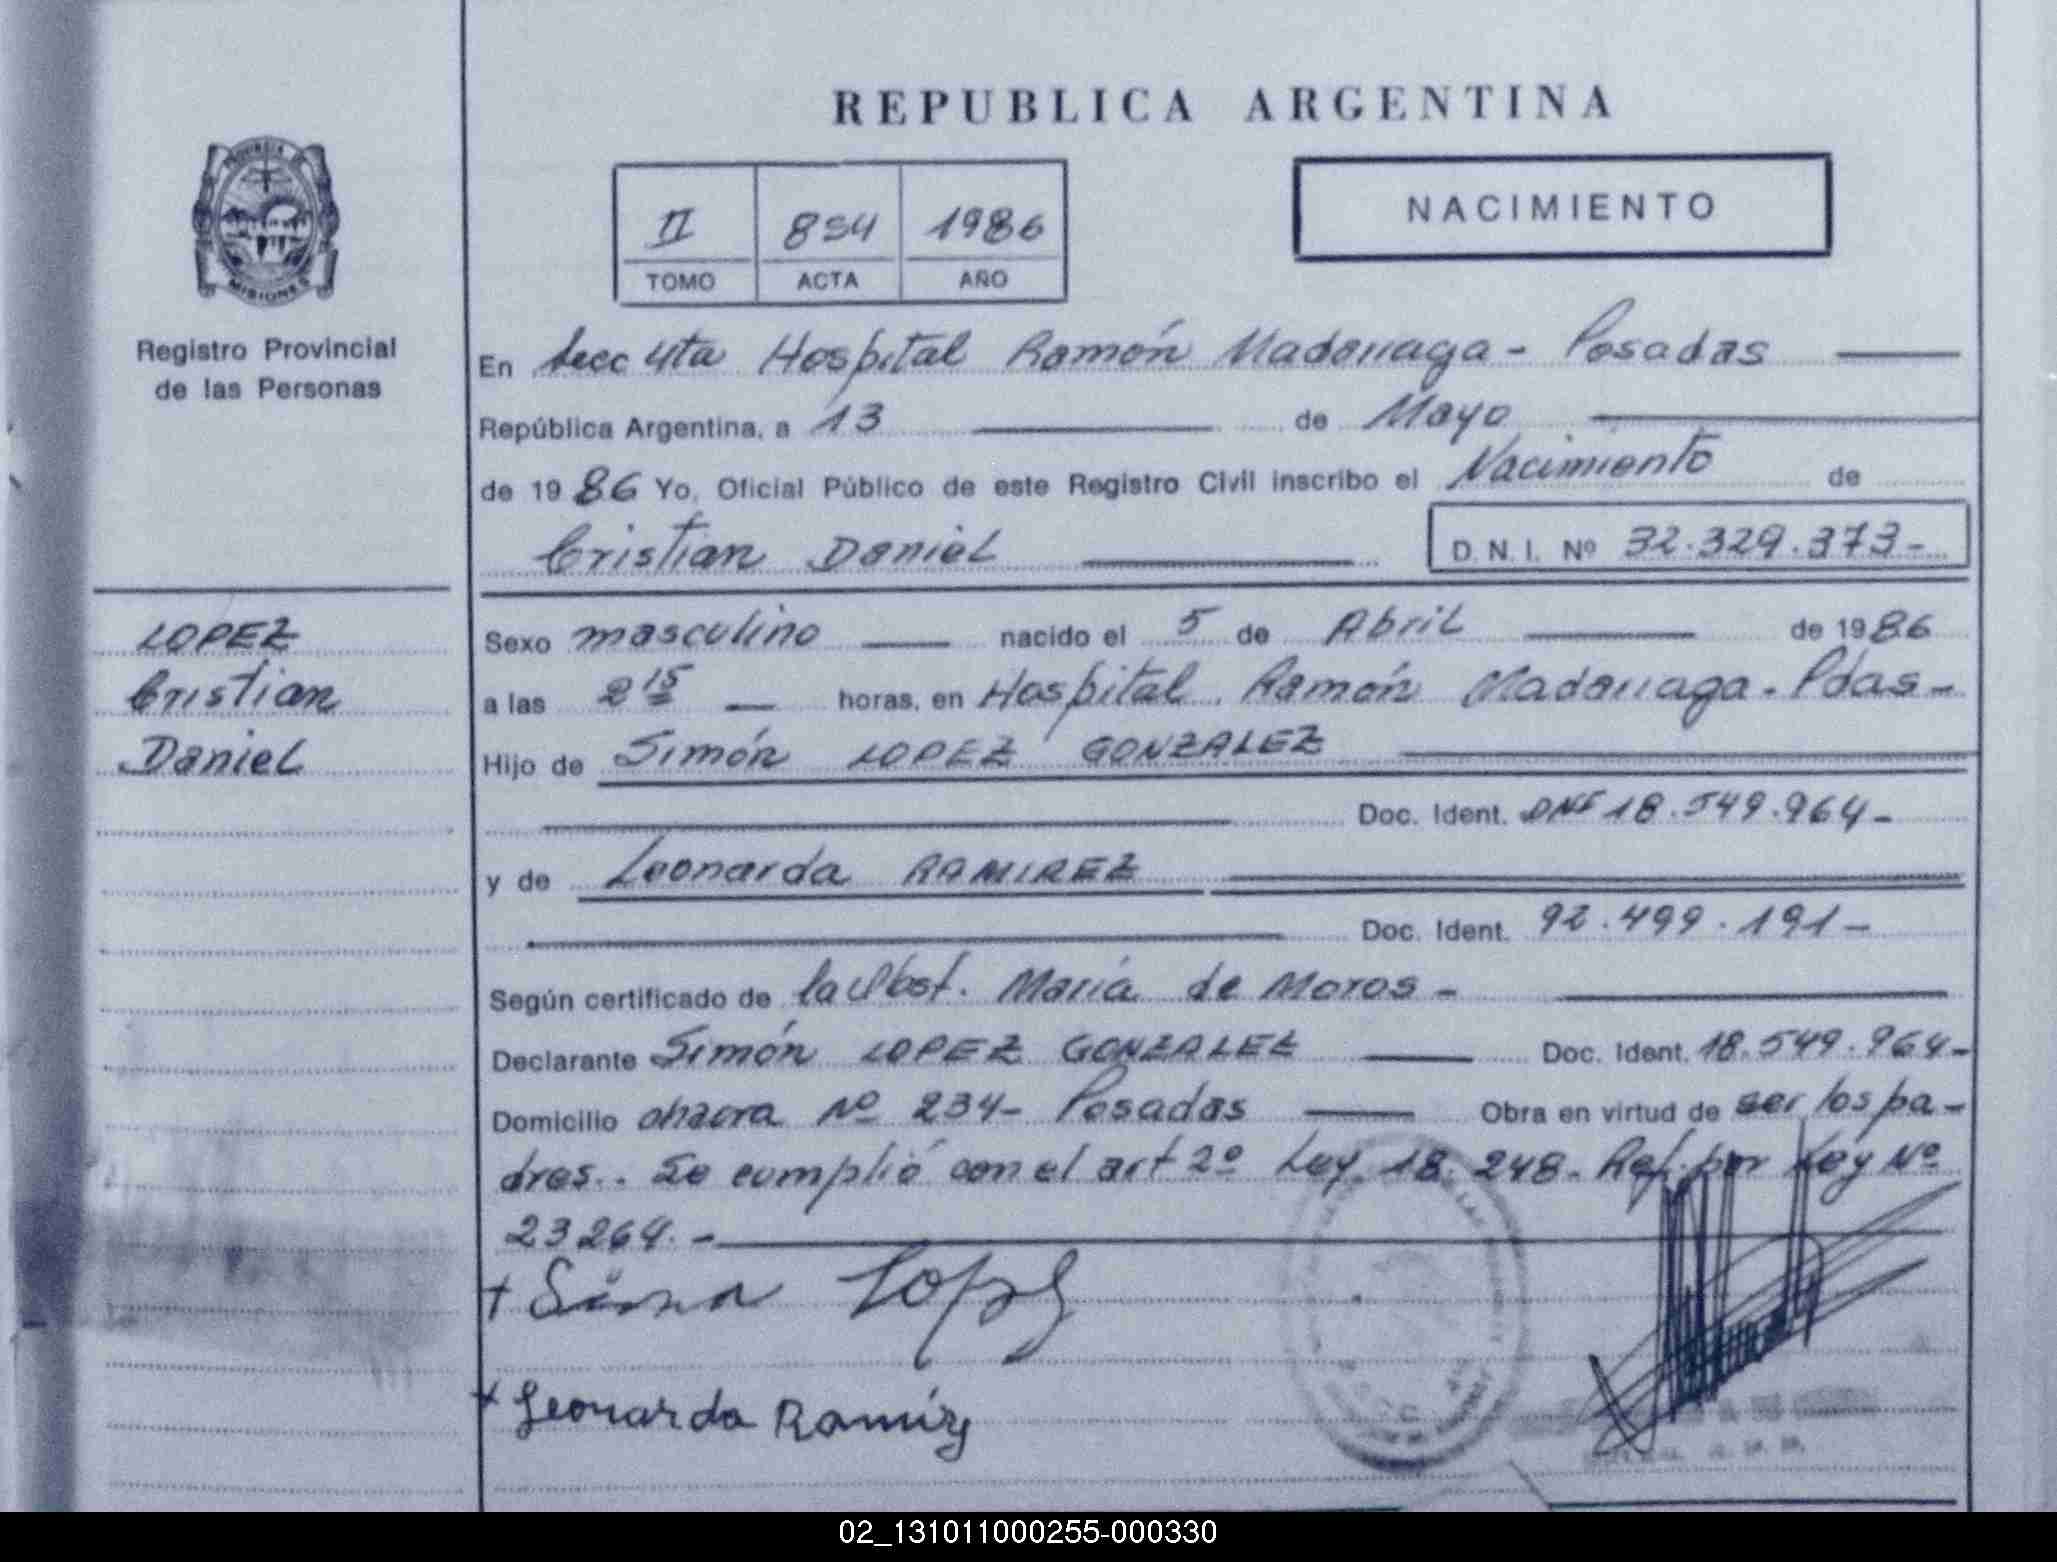 REPUBLICA ARGENTINA
PROVINCIA DE MISIONES
Registro Provincial
de las Personas
II 854 1986
TOMO ACTA AÑO
NACIMIENTO
En Secc 4ta Hospital Ramón Madariaga - Posadas
República Argentina, a 13 de Mayo
de 1986 Yo, Oficial Público de este Registro Civil inscribo el Nacimiento de
Cristian Daniel D. N. I. Nº 32.329.373-
LOPEZ
Cristian
Daniel
Sexo masculino nacido el 5 de Abril de 1986
a las 2 15 horas, en Hospital Ramón Madariaga - Pdas-
Hijo de Simón LOPEZ GONZALEZ
Doc. Ident. DNI 18.549.964-
y de Leonarda RAMIREZ
Doc. Ident. 92.499.191-
Según certificado de la Obst. María de Moros -
Declarante Simón LOPEZ GONZALEZ Doc. Ident. 18.549.964-
Domicilio Nº 234- Posadas Obra en virtud de ser los pa-
dres.. Se cumplió con el art 2º Ley 18.248- Ref. por Ley Nº
23264.-
+ Simon Lopez
+ Leonarda Ramirez
02_131011000255-000330